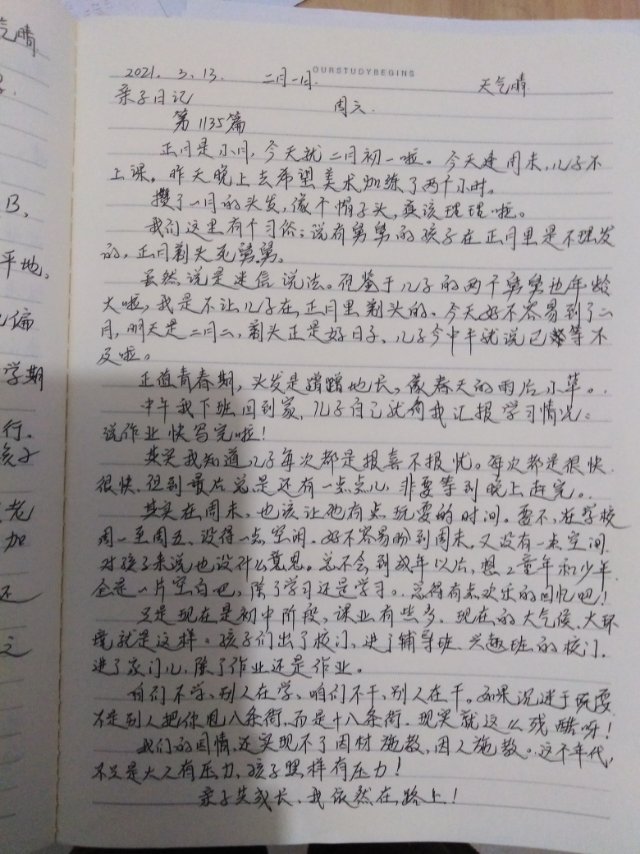 OURSTUDYBEGINS
2021. 3. 13. 二月一日. 天气晴
亲子日记 周六.
第1135篇
正月是小月,今天就二月初一啦。今天逢周末,儿子不
上课。昨天晚上去希望美术训练了两个小时。
攒了一月的头发,像个帽子头,真该理理啦。
我们这里有个习俗:说有舅舅的孩子在正月里是不理发
的,正月剃头死舅舅。
虽然说是迷信说法。但鉴于儿子的两个舅舅也年龄
大啦,我是不让儿子在正月里剃头的。今天好不容易到了二
月,明天是二月二,剃头正是好日子、儿子今中午就说已等不
及啦。
正值青春期,头发是蹭蹭地长,像春天的雨后小草。
中午我下班回到家,儿子自己就向我汇报学习情况。
说作业快写完啦!
其实我知道儿子每次都是报喜不报忧。每次都是很快
很快,但到最后总是还有一点点儿,非要等到晚上赶完。
其实在周末,也该让他有点玩耍的时间。要不,在学校
周一至周五、没得一点空闲。好不容易盼到周末,又没有一点空间
对孩子来说也没什么意思。总不会到数年以后,想之童年和少年
全是一片空白吧,除了学习还是学习。总得有点欢乐的回忆吧!
只是现在是初中阶段,课业有些多,现在的大气候、大环
境就是这样。孩子们出了校门,进了辅导班、兴趣班的校门,
进了家门儿,除了作业还是作业。
咱们不学,别人在学、咱们不干,别人在干。如果沉迷于玩耍
不是别人把你甩八条街,而是十八条街、现实就这么残酷呀!
我们的国情,还实现不了因材施教,因人施教。这个年代,
不只是大人有压力,孩子照样有压力!
亲子共成长,我依然在路上!
气晴
B,
平地,
偏
学期
行。
孩子
老
加
还
之